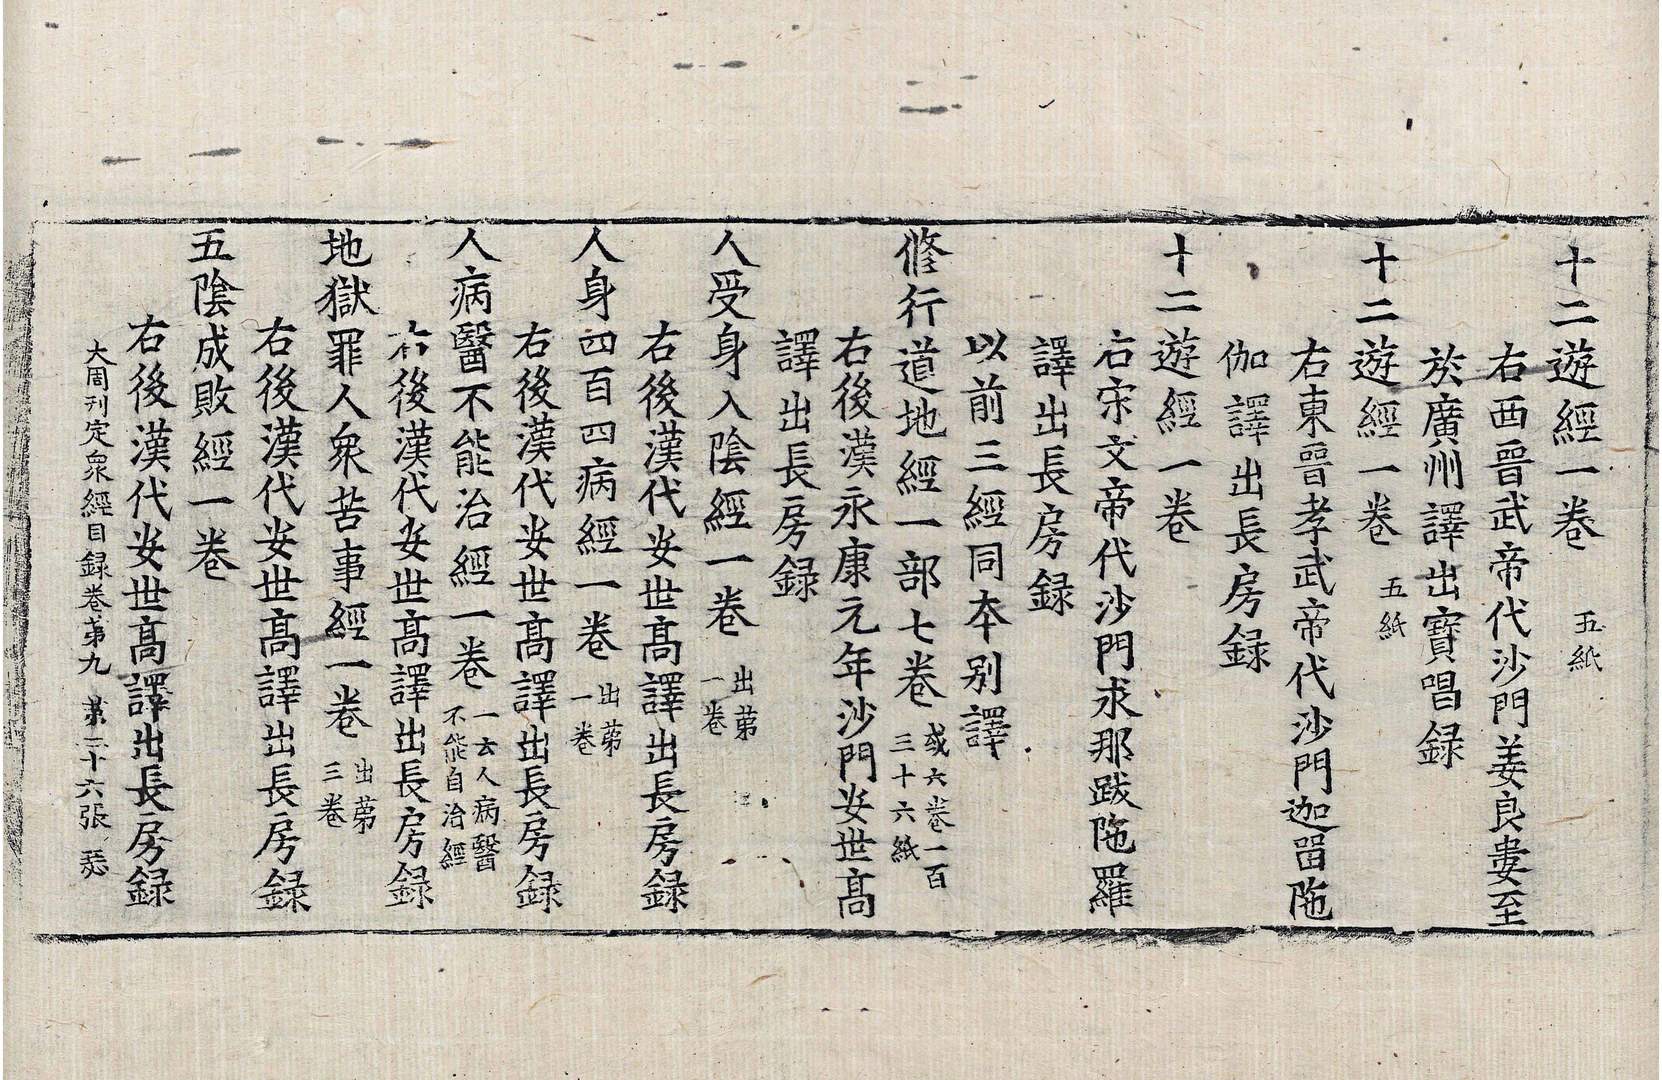 十二遊經一卷 五紙
右西晉武帝代沙門姜良婁至
於廣州譯出寶唱録
十二遊經一卷 五紙
右東晉孝武帝代沙門迦留陁
伽譯出長房録
十二遊經一卷
右宋文帝代沙門求那跋陁羅
譯出長房録
以前三經同本别譯
脩行道地經一部七卷 或六卷一百
三十六紙
右後漢永康元年沙門安世髙
譯出長房録
人受身入陰經一卷 出苐
一卷
右後漢代安世髙譯出長房録
人身四百四病經一卷 出苐
一卷
右後漢代安世髙譯出長房録
人病醫不能治經一卷 一云人病醫
不能自治經
右後漢代安世髙譯出長房録
地獄罪人衆苦事經一卷 出苐
三卷
右後漢代安世髙譯出長房録
五陰成敗經一卷
右後漢代安世髙譯出長房録
大周刋定衆經目録卷苐九 苐二十六張